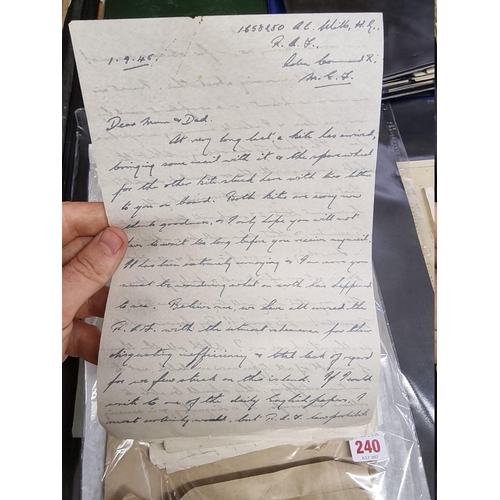 1658250 A.C. Mitts, H.G.,
R.A.F.,
1.9.45.
Aden Command R.
M.E.F.
Dear Mum & Dad.
At very long last a kite has arrived,
bringing some mail with it & the spare wheel
for the other kite stuck here with two letters
to you on board. Both kites are away now
thank goodness, & I only hope you will not
have to wait too long before you receive my mail.
It has been extremely annoying & I'm sure you
must be wondering what on earth has happened
to me. Believe me, we have all cursed the
R.A.F. with the utmost vehemence for their
disgusting inefficiency & total lack of regard
for we few stuck on this island. If I could
write to one of the daily English papers, I
most certainly would, but R.A.F. law prohibits
240